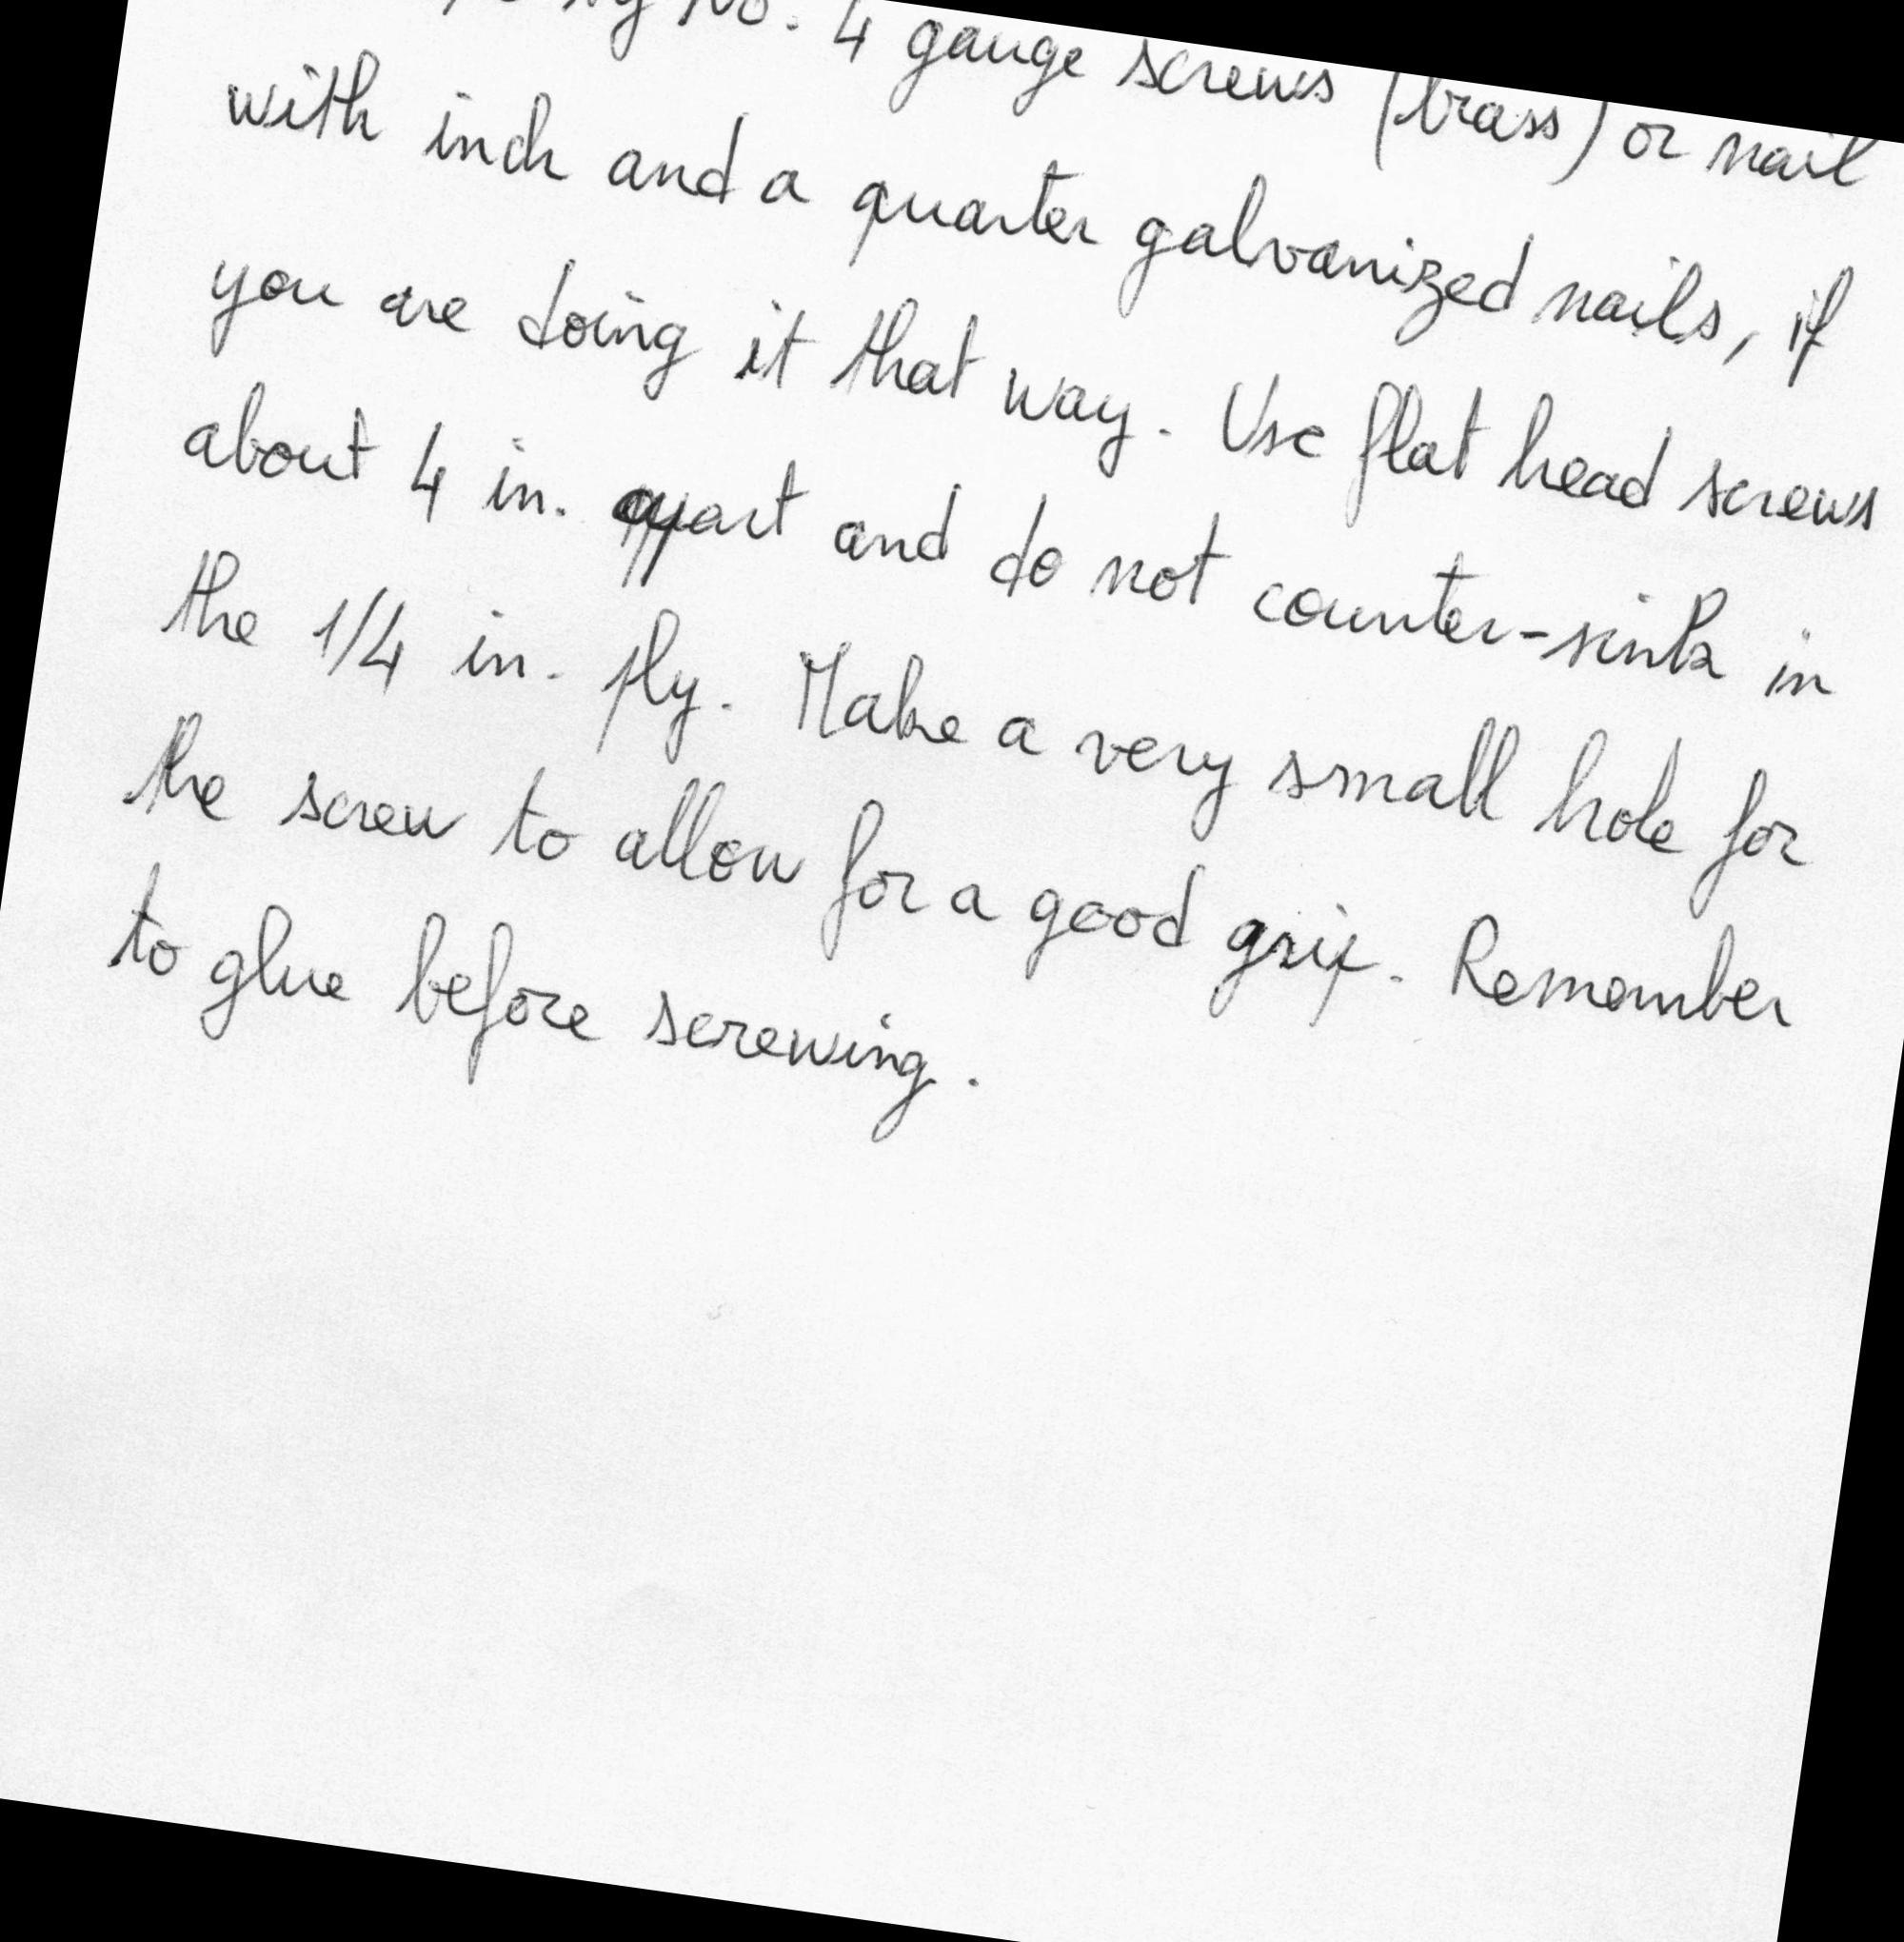 by No. 4 gauge screws (brass) or nail
with inch and a quarter galvanized nails, if
you are doing it that way. Use flat head screws
about 4 in. apart and do not counter-sink in
the 1/4 in. ply. Make a very small hole for
the screw to allow for a good grip. Remember
to glue before screwing.